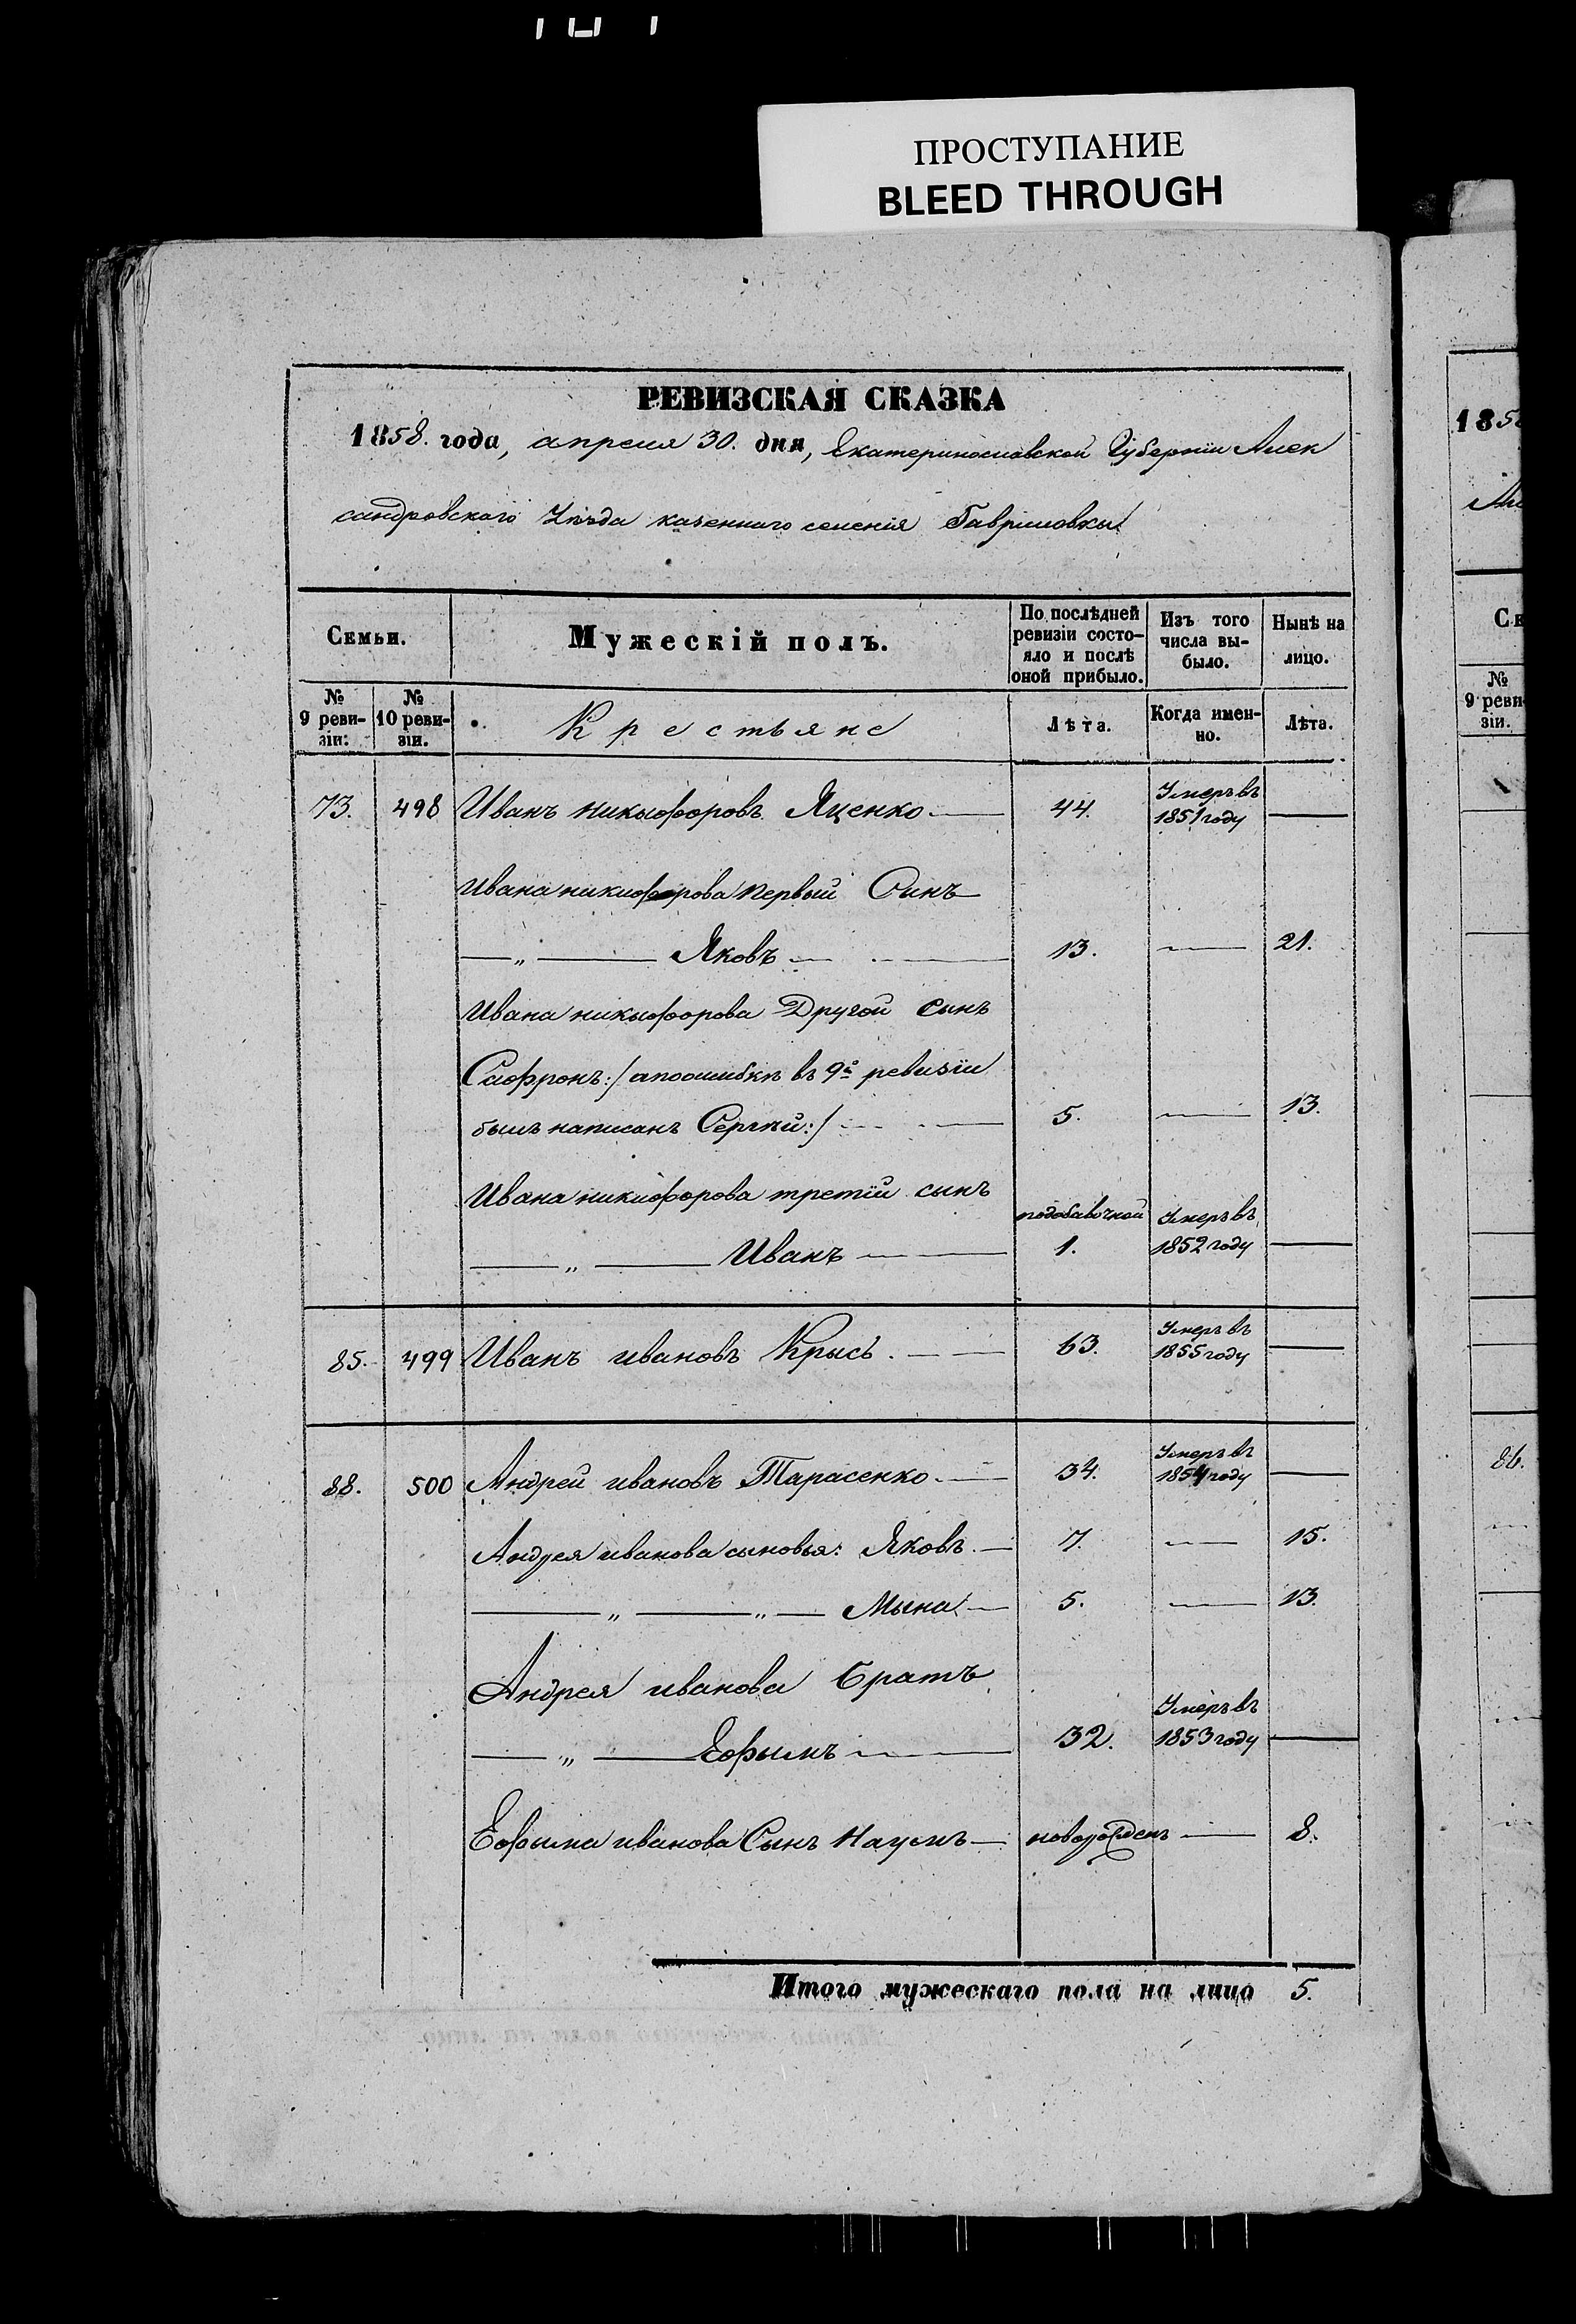 ПРОСТУПАНИЕ
BLEED THROUGH
РЕВИЗСКАЯ СКАЗКА
1858. года, апреля 30. дня, Екатеринославской Губернiи Алек
сандровскаго Уѣзда казеннаго селенiя Гаврыловкы
Семьи.
Мужескiй полъ.
По послѣдней ревизiи состо-
яло и послѣ
оной прибыло.
Изъ того
числа вы-
было.
Нынѣ на
лицо.
№
9 реви-
зiи.
№
10 реви-
зiи.
Крестьяне
Лѣта.
Когда имен-
но.
Лѣта.
73. 498 Иванъ никыфоровъ Яценко — 44. Умеръ въ 1851 году —
Ивана никифорова первый Сынъ
— „ — Яковъ — 13. — 21.
Ивана никыфорова Другой сынъ
Сафронъ :/ апоошибкѣ въ 9й ревизiи
былъ написанъ Сергѣй :/ — 5. — 13.
Ивана никифорова третiй сынъ
— „ — Иванъ — подобавочной 1. Умеръ въ 1852 году —
85. 499 Иванъ ивановъ Крысь. — 63. Умеръ въ 1855 году —
88. 500 Андрей ивановъ Тарасенко — 34. Умеръ въ 1854 году —
Андрея иванова сыновья: Яковъ. — 7. — 15.
— „ — „ — Мына — 5. — 13.
Андрея иванова братъ
— „ — Ефымъ — 32. Умеръ въ 1853 году —
Ефыма иванова Сынъ Наумъ — новорожденъ — 8.
Итого мужескаго пола на лицо 5.
185
С
№
9 реви
зiи.
86.